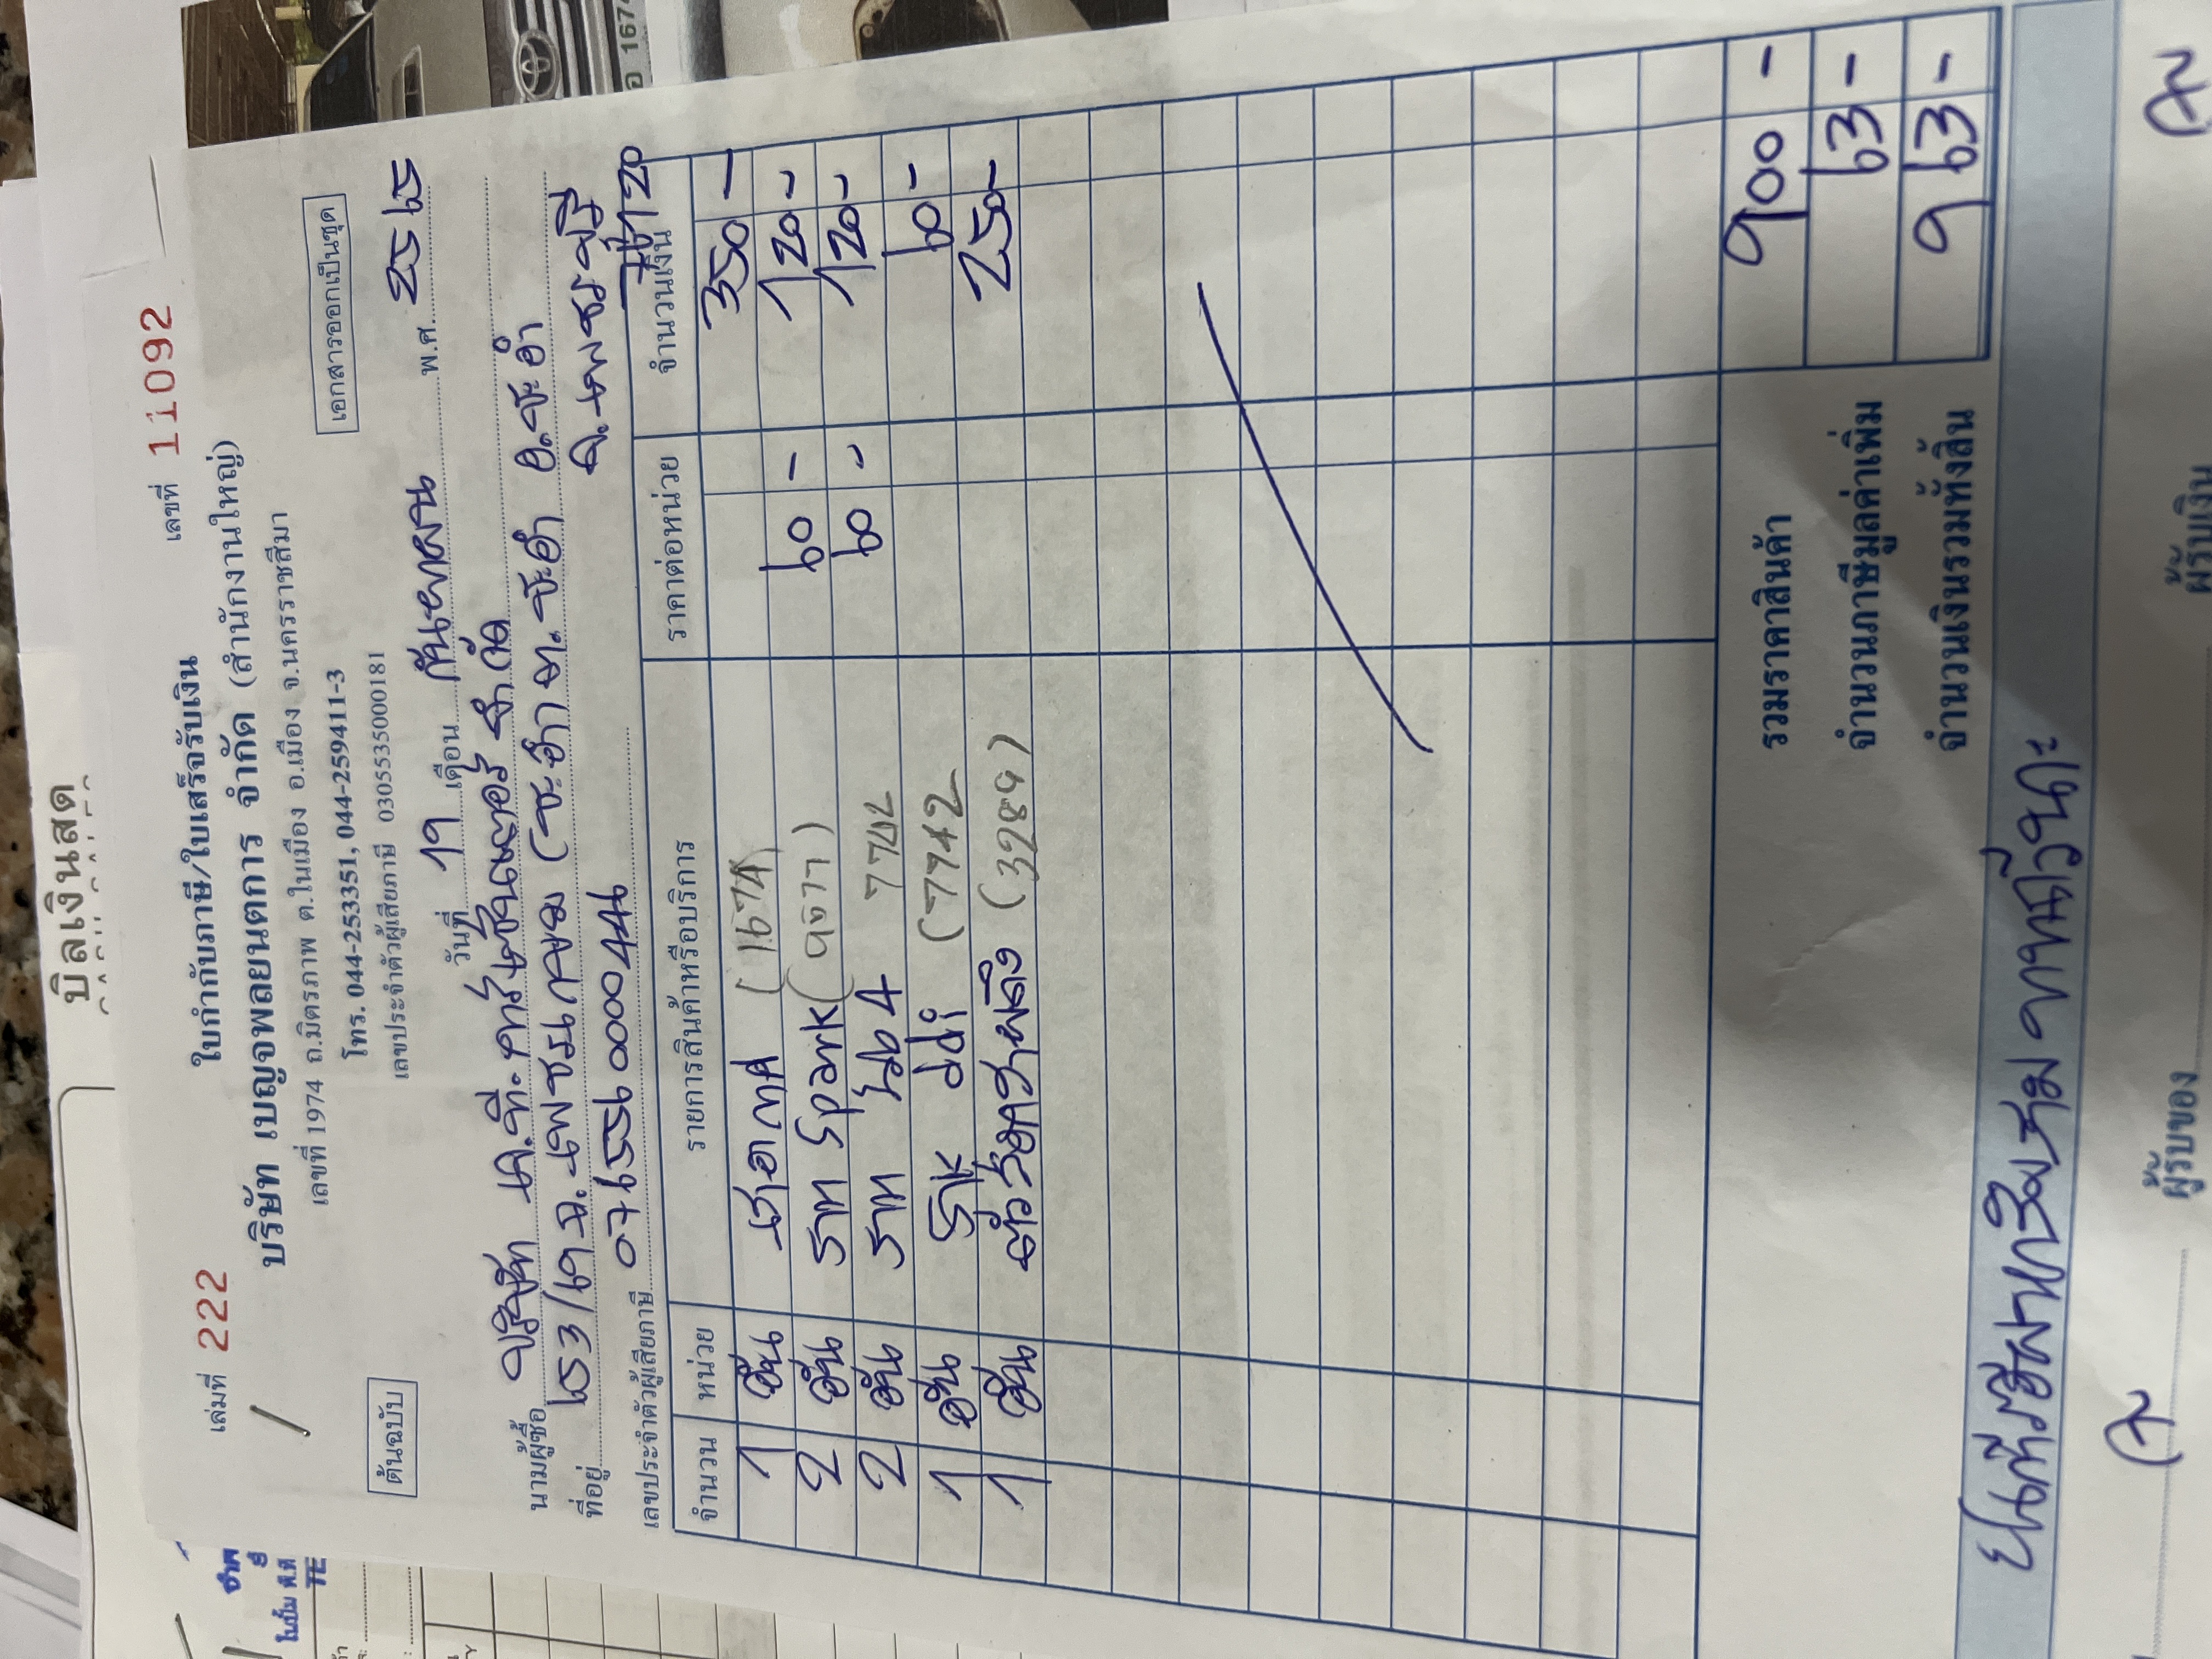 บิลเงินสด
เล่มที่ 222
เลขที่ 11092
ใบกำกับภาษี/ใบเสร็จรับเงิน
บริษัท เบญจพลยนตการ จำกัด (สำนักงานใหญ่)
เลขที่ 1974 ถ.มิตรภาพ ต.ในเมือง อ.เมือง จ.นครราชสีมา
โทร. 044-253351, 044-259411-3
เลขประจำตัวผู้เสียภาษี 0305535000181
ต้นฉบับ
เอกสารออกเป็นชุด
วันที่ 19 เดือน กันยายน พ.ศ. 2565
นามผู้ซื้อ บริษัท เค.ที. จำกัด
ที่อยู่ ถ.เพชรเกษม (ชะอำ ต.ชะอำ อ.ชะอำ
จ.เพชรบุรี
เลขประจำตัวผู้เสียภาษี 0765560000446 76120
จำนวน หน่วย รายการสินค้าหรือบริการ ราคาต่อหน่วย จำนวนเงิน
1 อัน (1674) 350 -
2 อัน รท Spark (9677) 60 - 120 -
2 อัน รท 7742 60 - 120 -
1 อัน (7742 60 -
1 อัน (3289) 250 -
รวมราคาสินค้า 900 -
จำนวนภาษีมูลค่าเพิ่ม 63 -
จำนวนเงินรวมทั้งสิ้น 963 -
ผู้รับของ
ผู้รับเงิน